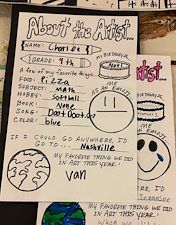 About the Artist...
NAME: Charlee
MY BIRTHDAY IS
GRADE: 4th
A few of my favorite things...
ME AS AN EMOJI
FOOD: Pizza
SUBJECT: Math
HOBBY: Softball
BOOK: None
SONG: Doo Doo
COLOR: blue
IF I COULD GO ANYWHERE, I'D GO TO... Nashville
MY FAVORITE THING WE DID IN ART THIS YEAR:
van
tist...
MY FAVORITE THING WE DID
IN ART THIS YEAR: